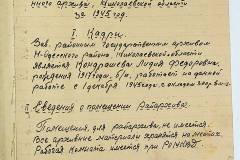 нного архива, Николаевской области
за 1945 год.
I. Кадры
Зав. районным Государственным архивом
Н-Одесского района Николаевской области
является Кондрашева Лидия Федоровна,
рождения 1917 года, б/п, работает на данной
работе с 1 декабря 1945 года с окладом
II Сведения о помещении Райархива.
Помещения для райархива не имеется.
Все архивные материалы хранятся
Рабочая комната имеется при РО НКВД